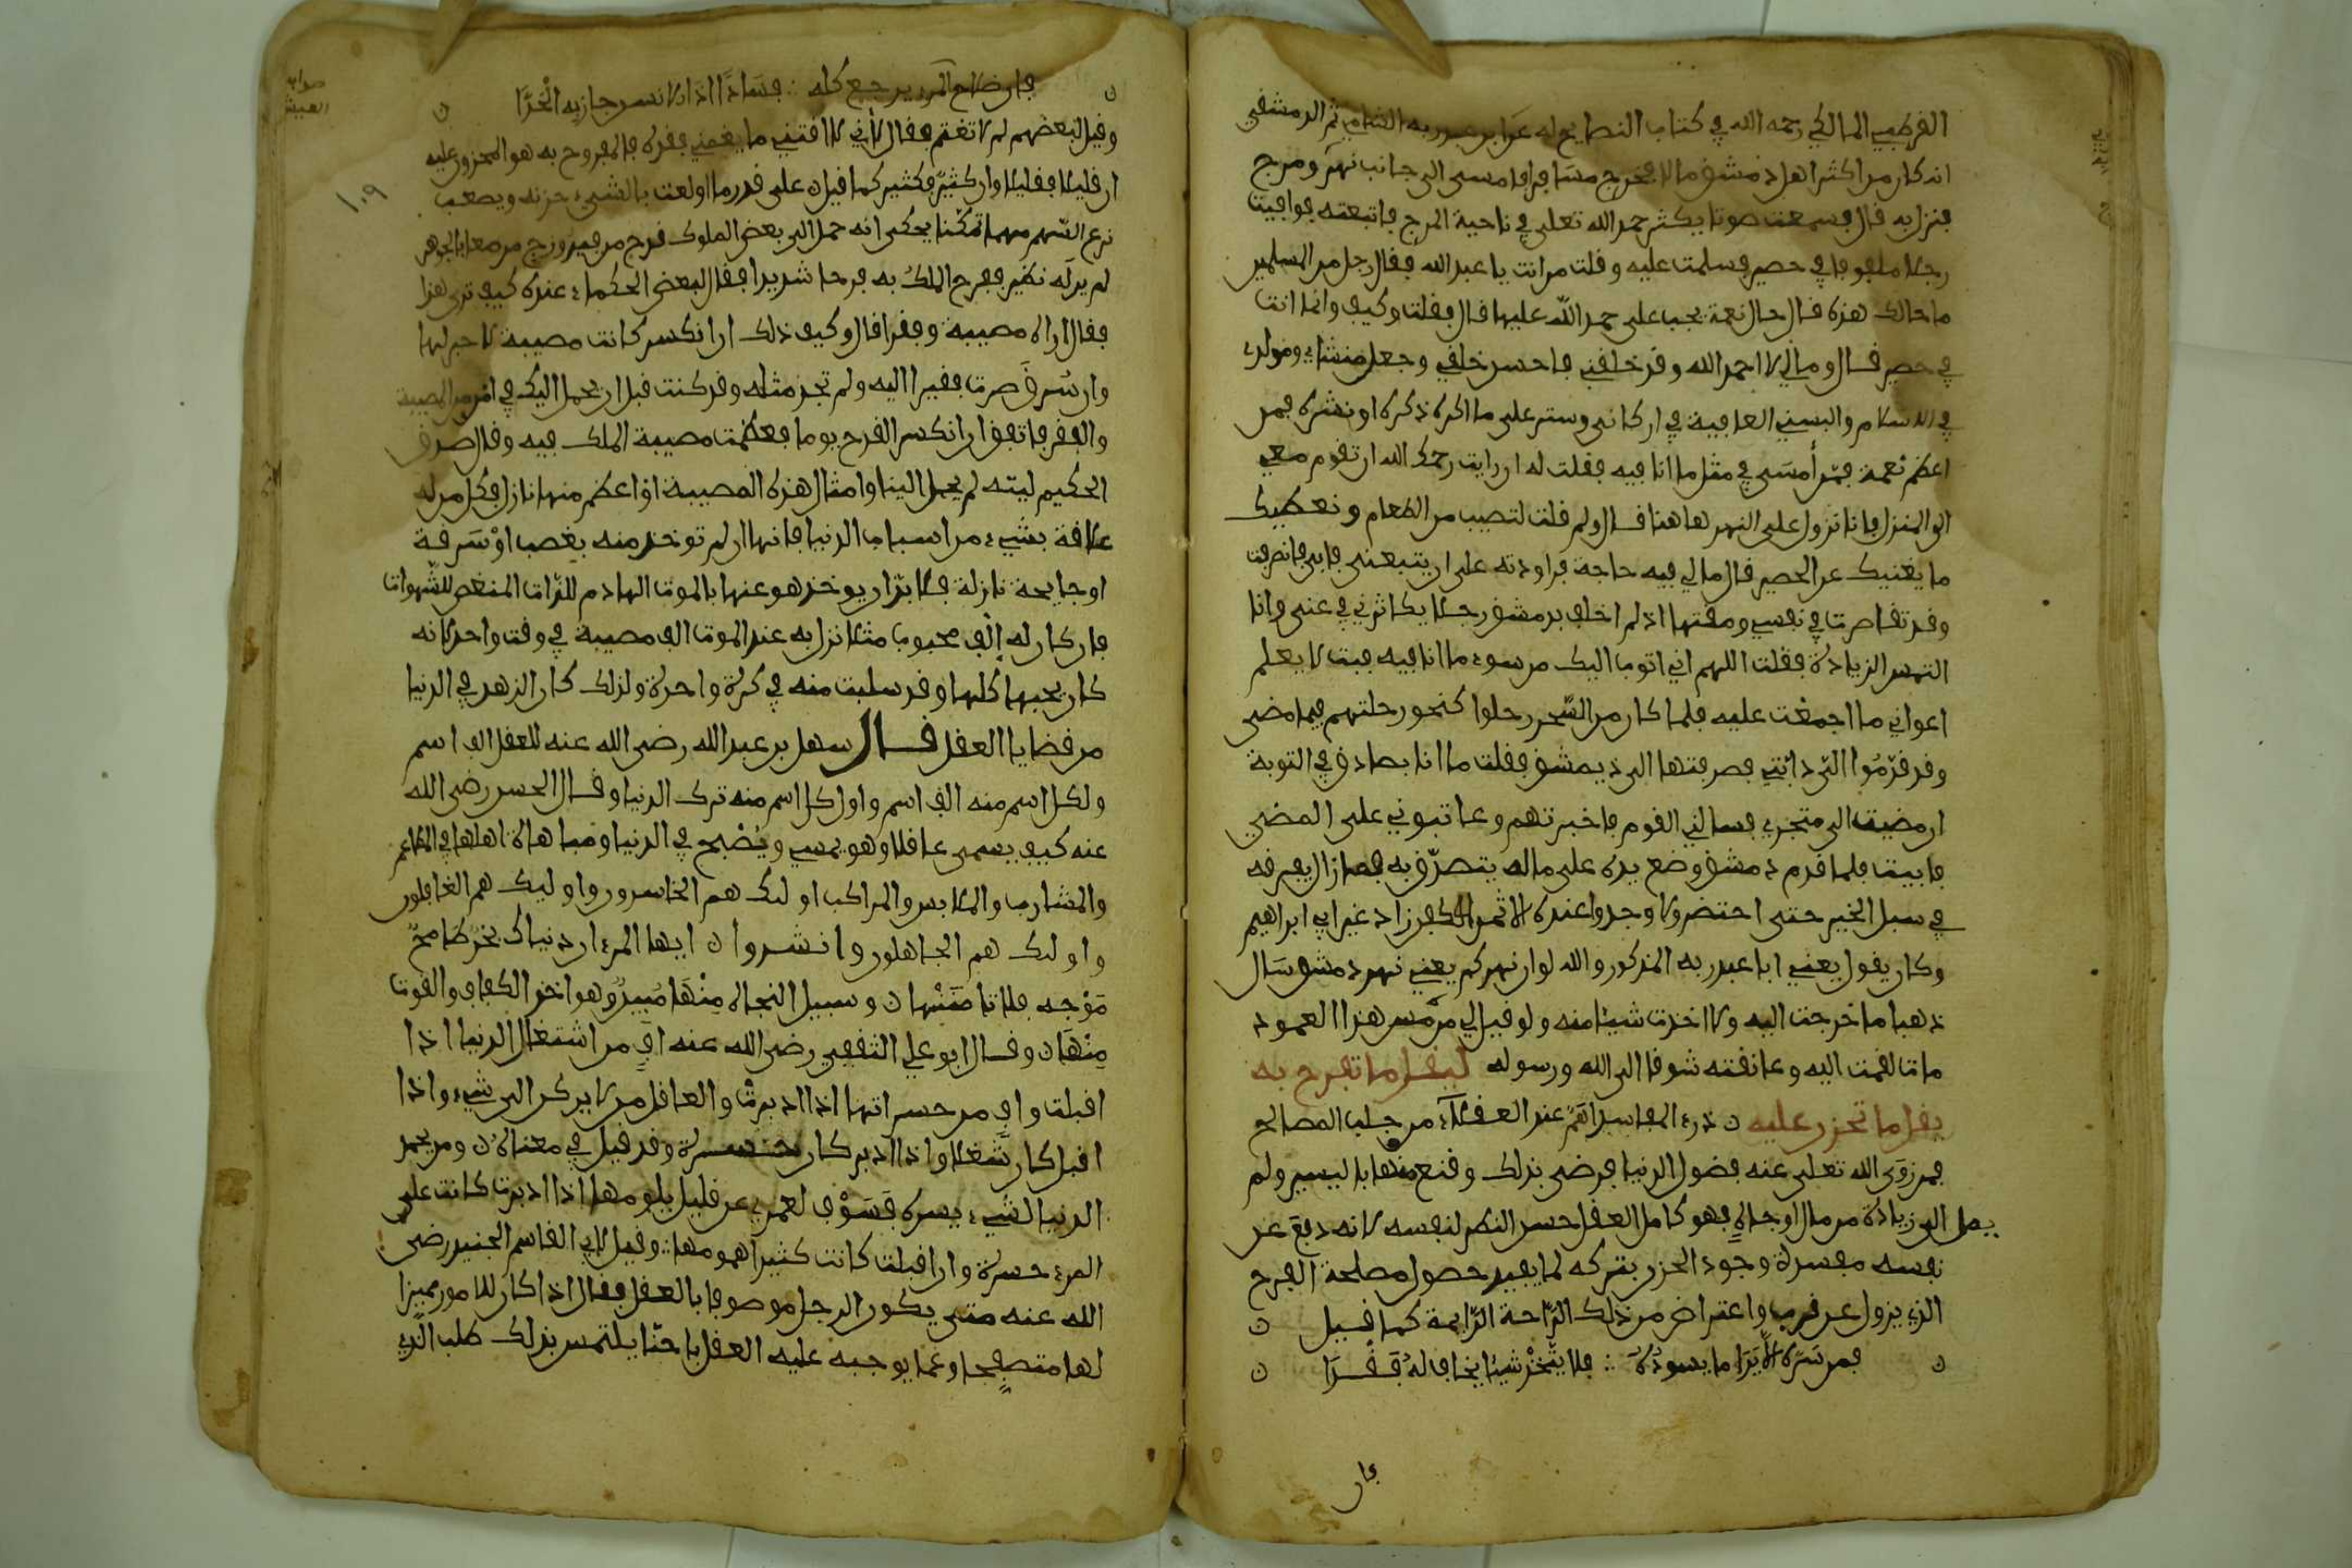 القرطبي المالكي رحمه الله في كتاب النصايح له عن ابن عبد ربه الشامي ثم الدمشقي
انه كان من اكثر اهل دمشق مالا فخرج مسافرا فامسى الى جانب نهر ومرج
فنزل به قال فسمعت صوتا يكثر حمد الله تعلى في ناحية المرج فاتبعته فوافيت
رجلا ملفوفا في حصير فسلمت عليه وقلت من انت يا عبد الله فقال رجل من المسلمين
ما حالك هذه قال حال نعمة يجب على حمد الله عليها قال فقلت وكيف وانما انت
في حصير قال ومالي لا احمد الله وقد خلقني فاحسن خلقي وجعل منشاي ومولدي
في الاسلام والبسني العافية في اركاني وستر على ما اكره ذكره او نشره فمن
اعظم نعمة ممن أمسى في مثل ما انا فيه فقلت له ان رايت رحمك الله ان تقوم معي
الى المنزل فانا نزول على النهر هاهنا قال ولم قلت لتصيب من الطعام ونعطيك
ما يغنيك عن الحصير قال مالي فيه حاجة فراودته على ان يتبعني فابى فانصرفت
وقد تقاصرت في نفسي ومقتها اذ لم اخلف بدمشق رجلا يكاثرني في غنى وانا
التمس الزيادة فقلت اللهم اني اتوب اليك من سوء ما انا فيه فبت لا يعلم
اعواني ما اجمعت عليه فلما كان من السحر رحلوا كنحو رحلتهم فيما مضى
وقد قدموا الي دابتي فصرفتها الى دمشق فقلت ما انا بصادق في التوبة
ان مضيت الى متجري فسالني القوم فاخبرتهم وعاتبوني على المضي
فابيت فلما قدم دمشق وضع يده على ماله يتصدق به فما زال يفرقه
في سبل الخير حتى احتضر ولا وجدوا عنده الا ثمن الكفن زاد غير ابي ابراهيم
وكان يقول يعني ابا عبد ربه المذكور والله لو ان نهركم يعني نهر دمشق سال
ذهبا ما خرجت اليه ولا اخذت شيئا منه ولو قيل لي من مس هذا العمود
مات لقمت اليه وعانقته شوقا الى الله ورسوله ليقل ما تفرح به
يقل ما تحزن عليه ن درء المفاسد اهم عند العقلاء من جلب المصالح
فمن زوى الله تعلى عنه فضول الدنيا فرضي بذلك وقنع منها باليسير ولم
يصل الى زيادة من مال او جاه فهو كامل العقل حسن النظر لنفسه لانه دفع عن
نفسه مفسدة وجود الحزن بتركه لما يفيد حصول مصلحة الفرح
الذي يزول عن قرب واعتراض من ذلك الراحة الدايمة كما قيل ن
ن فمن سره الا يرا ما يسوءه ∴ فلا يتخذ شيئا يخاف له فقدا ن
فان
ن فان صلاح المرء يرجع كله ∴ فسادا اذا الانسان جاز به الحدا ن
وقيل لبعضهم لم لا تغتم فقال لأني لا اقتني ما يغمني فقده فالمفروح به هو المحزون عليه
ان قليلا فقليلا وان كثيرا فكثير كما قيل ن على قدر ما اولعت بالشيء حزنه ويصعب
نزع السهم مهما تمكنا يحكى انه حمل الى بعض الملوك قدح من فيروزج مرصعا بالجوهر
لم ير له نظير ففرح الملك به فرحا شديدا فقال لبعض الحكماء عنده كيف ترى هذا
فقال اراه مصيبة وفقرا قال وكيف ذلك ان انكسر كانت مصيبة لا جبر لها
وان سرق صرت فقيرا اليه ولم تجد مثله وقد كنت قبل ان يحمل اليك في امن من المصيبة
والفقر فاتفق ان انكسر القدح يوما فعظمت مصيبة الملك فيه وقال صدق
الحكيم ليته لم يحمل الينا وامثال هذه المصيبة او اعظم منها نازل بكل من له
علاقة بشيء من اسباب الدنيا فانها ان لم توخذ منه بغصب او سرقة
او جايحة نازلة فلا بد ان يوخذ هو عنها بالموت الهادم للذات المنغص للشهوات
فان كان له الف محبوب مثلا نزل به عند الموت الف مصيبة في وقت واحد لانه
كان يحبها كلها وقد سلبت منه في كرة واحدة ولذلك كان الزهد في الدنيا
من قضايا العقل قال سهل بن عبد الله رضي الله عنه للعقل الف اسم
ولكل اسم منه الف اسم واول كل اسم منه ترك الدنيا وقال الحسن رضي الله
عنه كيف يسمى عاقلا وهو يمسي ويصبح في الدنيا ومباهاة اهلها في المطاعم
والمشارب والملابس والمراكب اوليك هم الخاسرون واوليك هم الغافلون
واوليك هم الجاهلون وانشدوا ن ايها المرء ان دنياك بحر طامح
موجه فلا تامننها ن وسبيل النجاه منها مبين وهو اخذ الكفاف والقوت
منها ن وقال ابو علي الثقفي رضي الله عنه اف من اشتغال الدنيا اذا
اقبلت واف من حسراتها اذا ادبرت والعاقل من لا يركن الى شيء واذا
اقبل كان شغلا واذا ادبر كان حسرة وقد قيل في معناه ن ومن يحمد
الدنيا لشيء يسره فسوف لعمري عن قليل يلومها اذا ادبرت كانت على
المرء حسرة وان اقبلت كانت كثيرا همومها ∴ وقيل لابي القاسم الجنيد رضي
الله عنه متى يكون الرجل موصوفا بالعقل فقال اذا كان للامور مميزا
لها متصفحا وعما يوجبه عليه العقل باحثا يلتمس بذلك طلب الذي
١٠٩